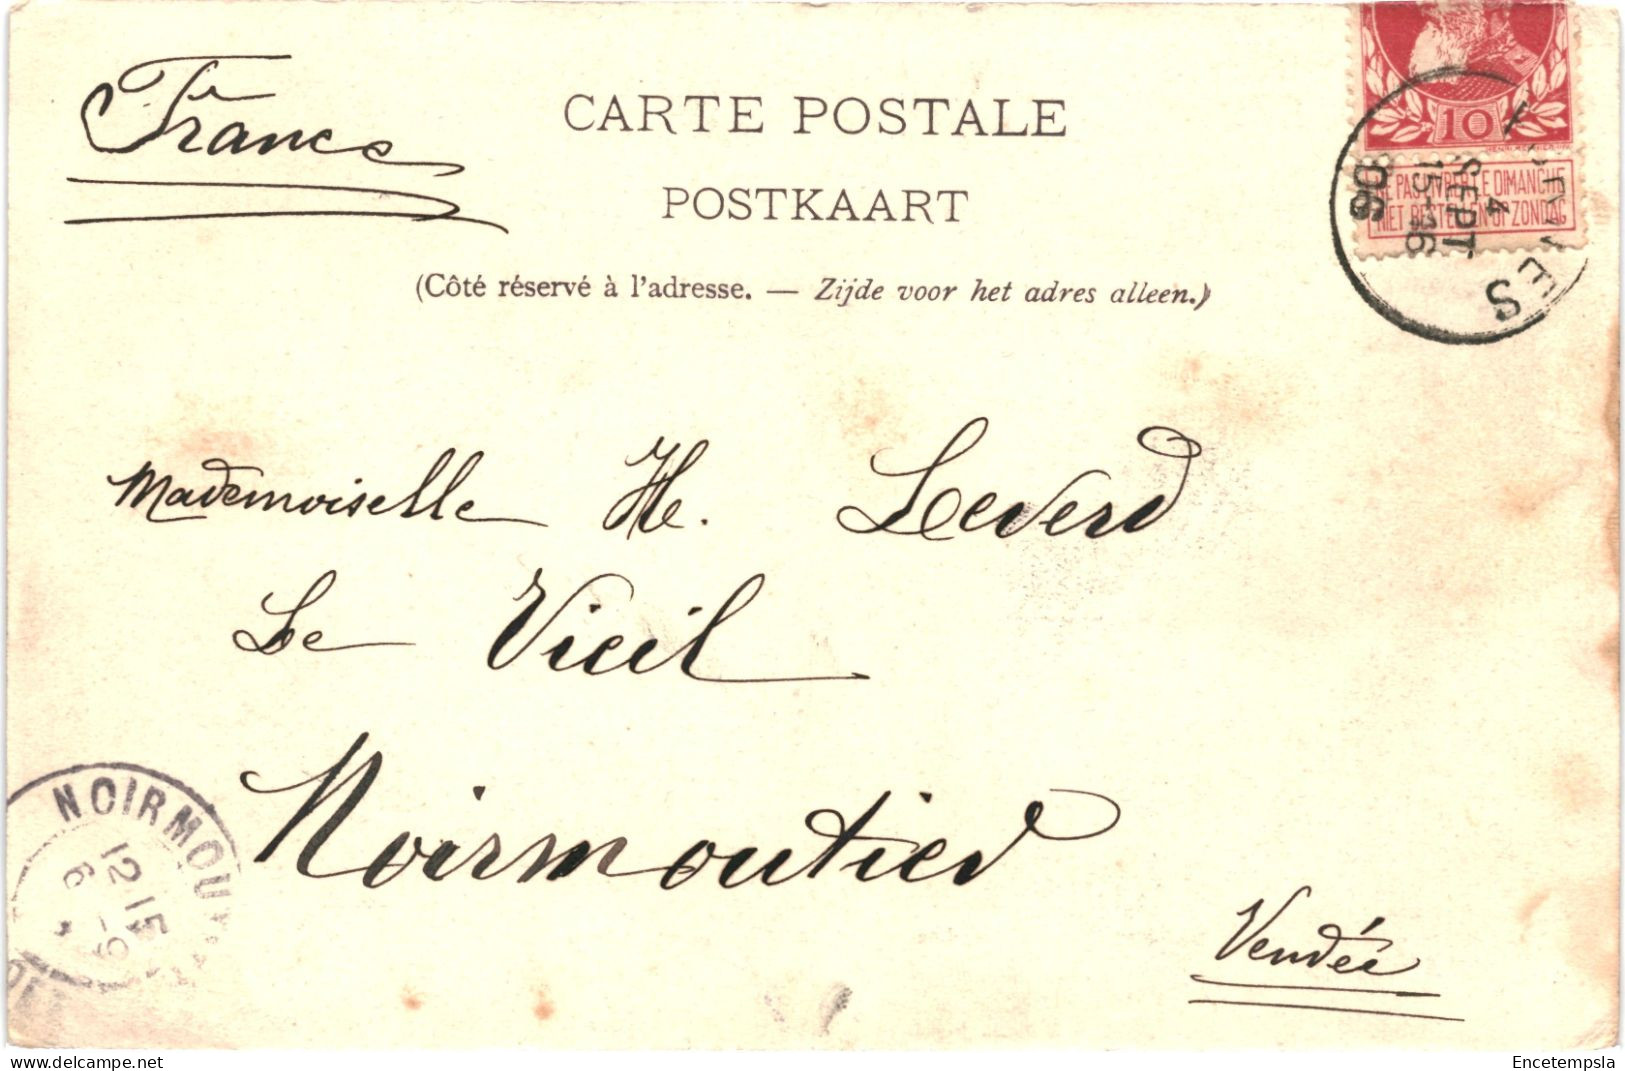 France
CARTE POSTALE
POSTKAART
(Côté réservé à l'adresse. — Zijde voor het adres alleen.)
10
NE PAS LIVRER LE DIMANCHE
NIET BESTELLEN OP ZONDAG
4
SEPT
15-16
06
Mademoiselle H. Leverd
Le Vieil
Noirmoutier
Vendée
NOIRMOU
12 15
6 -9
Encetempsla